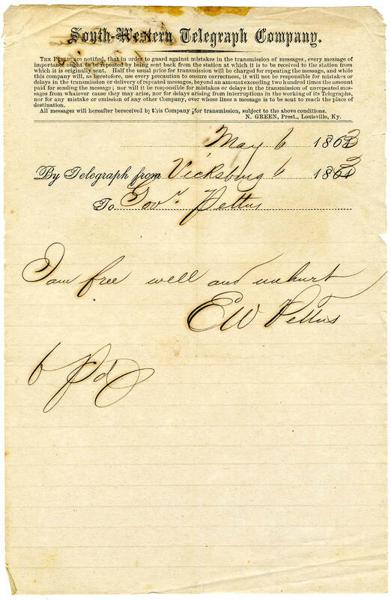 South-Western Telegraph Company.
THE PUBLIC are notified, that in order to guard against mistakes in the transmission of messages, every message of
importance ought to be repeated by being sent back from the station at which it is to be received to the station from
which it is originally sent. Half the usual price for transmission will be charged for repeating the message, and while
this company will, as heretofore, use every precaution to ensure correctness, it will not be responsible for mistakes or
delays in the transmission or delivery of repeated messages, beyond an amount exceeding two hundred times the amount
paid for sending the message; nor will it be responsible for mistakes or delays in the transmission of unrepeated messages
from whatever cause they may arise, nor for delays arising from interruptions in the working of its Telegraphs,
nor for any mistake or omission of any other Company, over whose lines a message is to be sent to reach the place of
destination.
All messages will hereafter be received by this Company for transmission, subject to the above conditions.
N. GREEN, Prest., Louisville, Ky.
May 6 1863
By Telegraph from Vicksburg 6 1863
To Govr. Pettus
I am free well and unhurt
E W Pettus
6 Pd